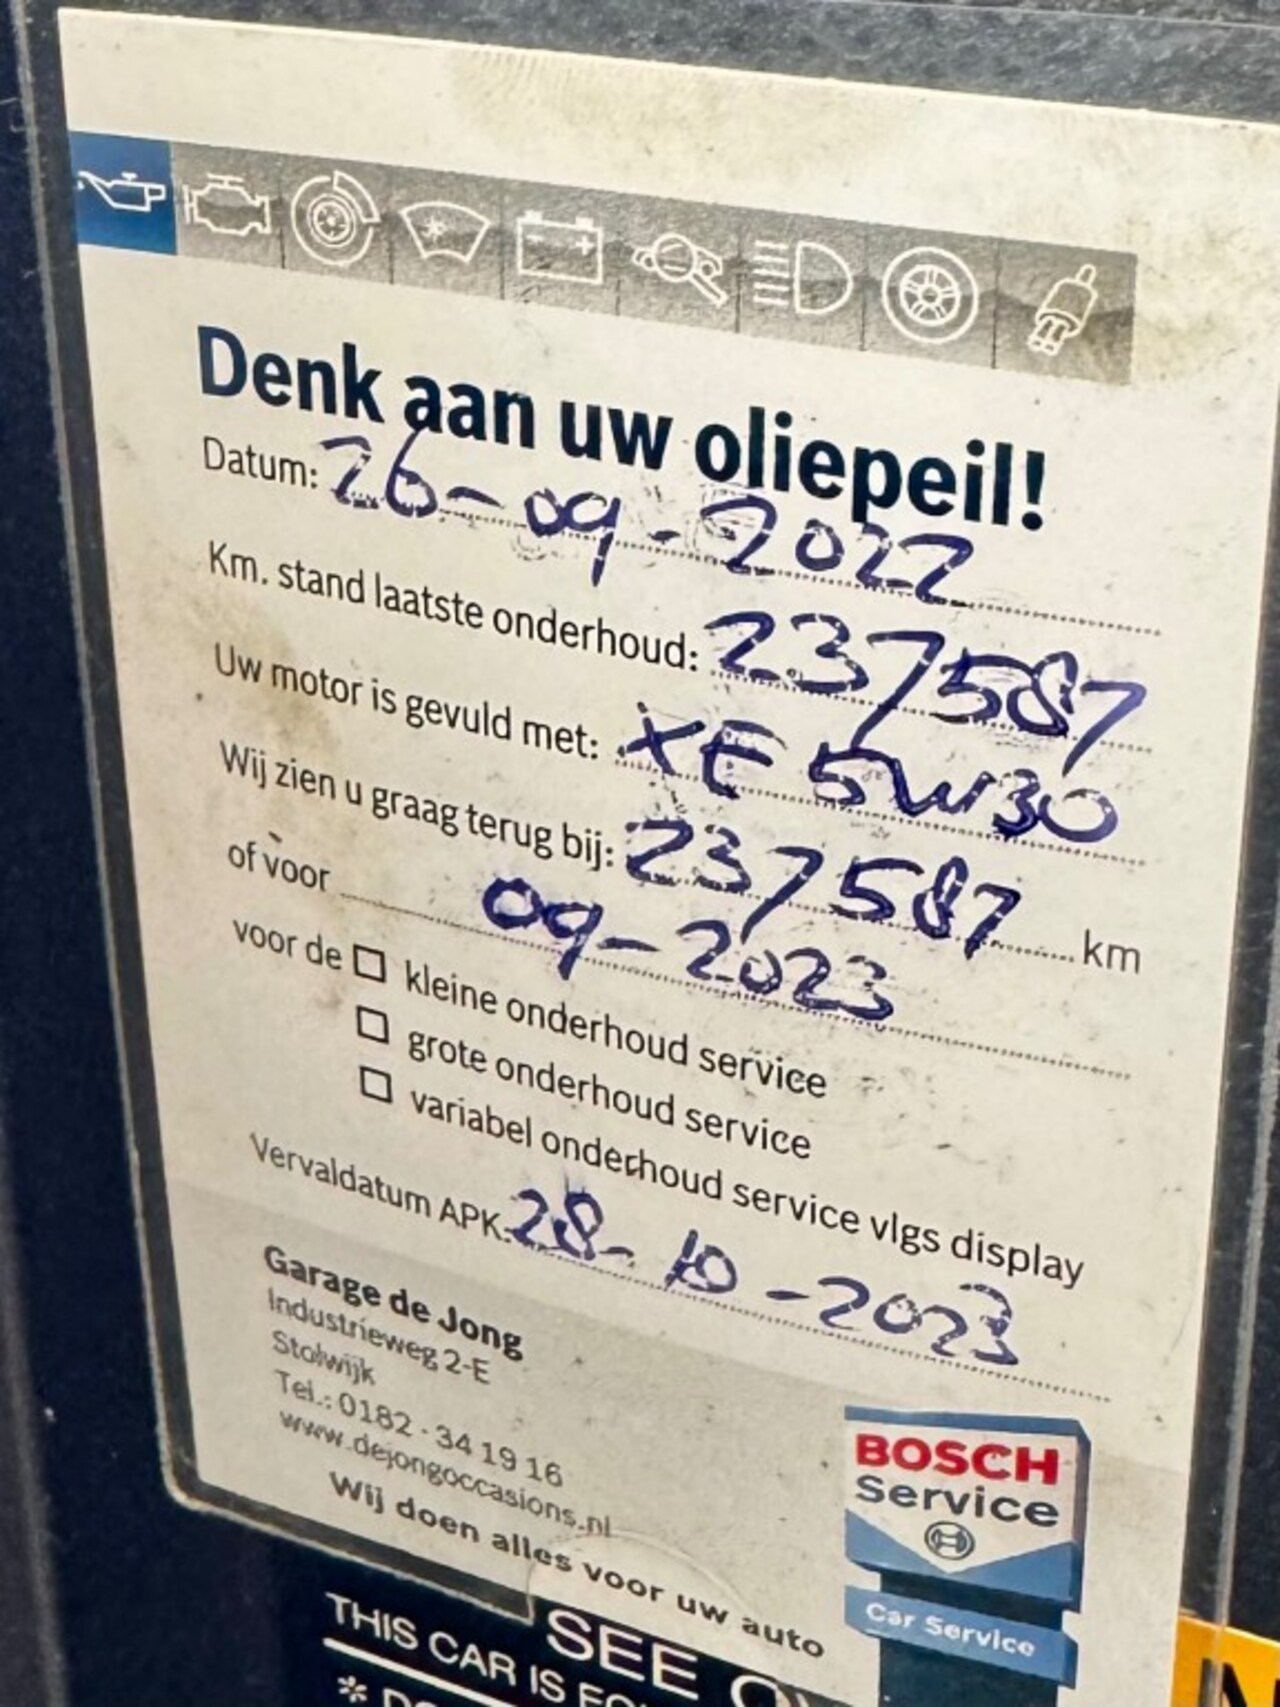 Denk aan uw oliepeil!
Datum: 26-09-2022
Km. stand laatste onderhoud: 237587
Uw motor is gevuld met: XE 5W30
Wij zien u graag terug bij: 237587 km
of vòòr 09-2023
voor de ☐ kleine onderhoud service
☐ grote onderhoud service
☐ variabel onderhoud service vlgs display
Vervaldatum APK: 28-10-2023
Garage de Jong
Industrieweg 2-E
Stolwijk
Tel.: 0182 - 34 19 16
www.dejongoccasions.nl
Wij doen alles voor uw auto
BOSCH
Service
Car Service
SEE
THIS CAR IS